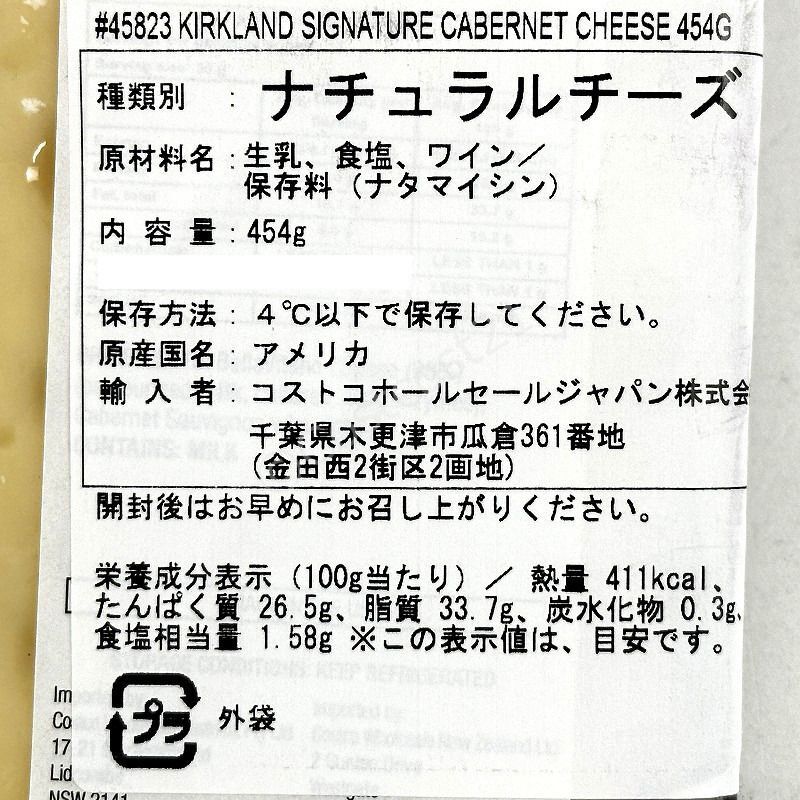 #45823 KIRKLAND SIGNATURE CABERNET CHEESE 454G
種類別 : ナチュラルチーズ
原材料名 : 生乳、食塩、ワイン／
保存料（ナタマイシン）
内容量 : 454g
保存方法 : 4℃以下で保存してください。
原産国名 : アメリカ
輸入者 : コストコホールセールジャパン株式会
千葉県木更津市瓜倉361番地
(金田西2街区2画地)
開封後はお早めにお召し上がりください。
栄養成分表示（100g当たり）／ 熱量 411kcal、
たんぱく質 26.5g、脂質 33.7g、炭水化物 0.3g、
食塩相当量 1.58g ※この表示値は、目安です。
プラ 外袋
STORAGE CONDITIONS: KEEP REFRIGERATED
CONTAINS: MILK
NSW 2141